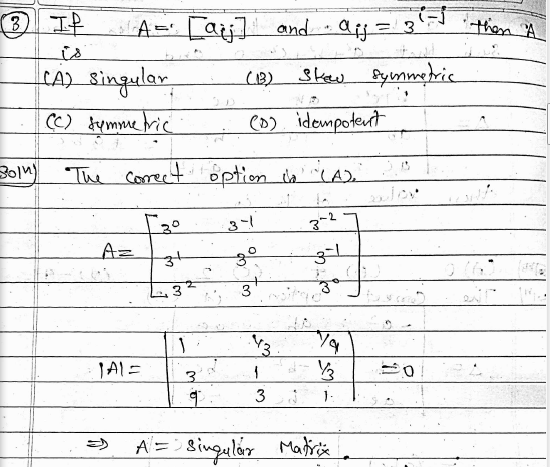 (3) If A = [aij] and aij = 3^i-j then A
is
(A) singular (B) Skew symmetric
(C) symmetric (D) idempotent
Soln) The correct option is (A).
A = [ 3^0 3^-1 3^-2
3^1 3^0 3^-1
3^2 3^1 3^0 ]
|A| = | 1 1/3 1/9
3 1 1/3
9 3 1 | = 0
⇒ A = Singular Matrix.